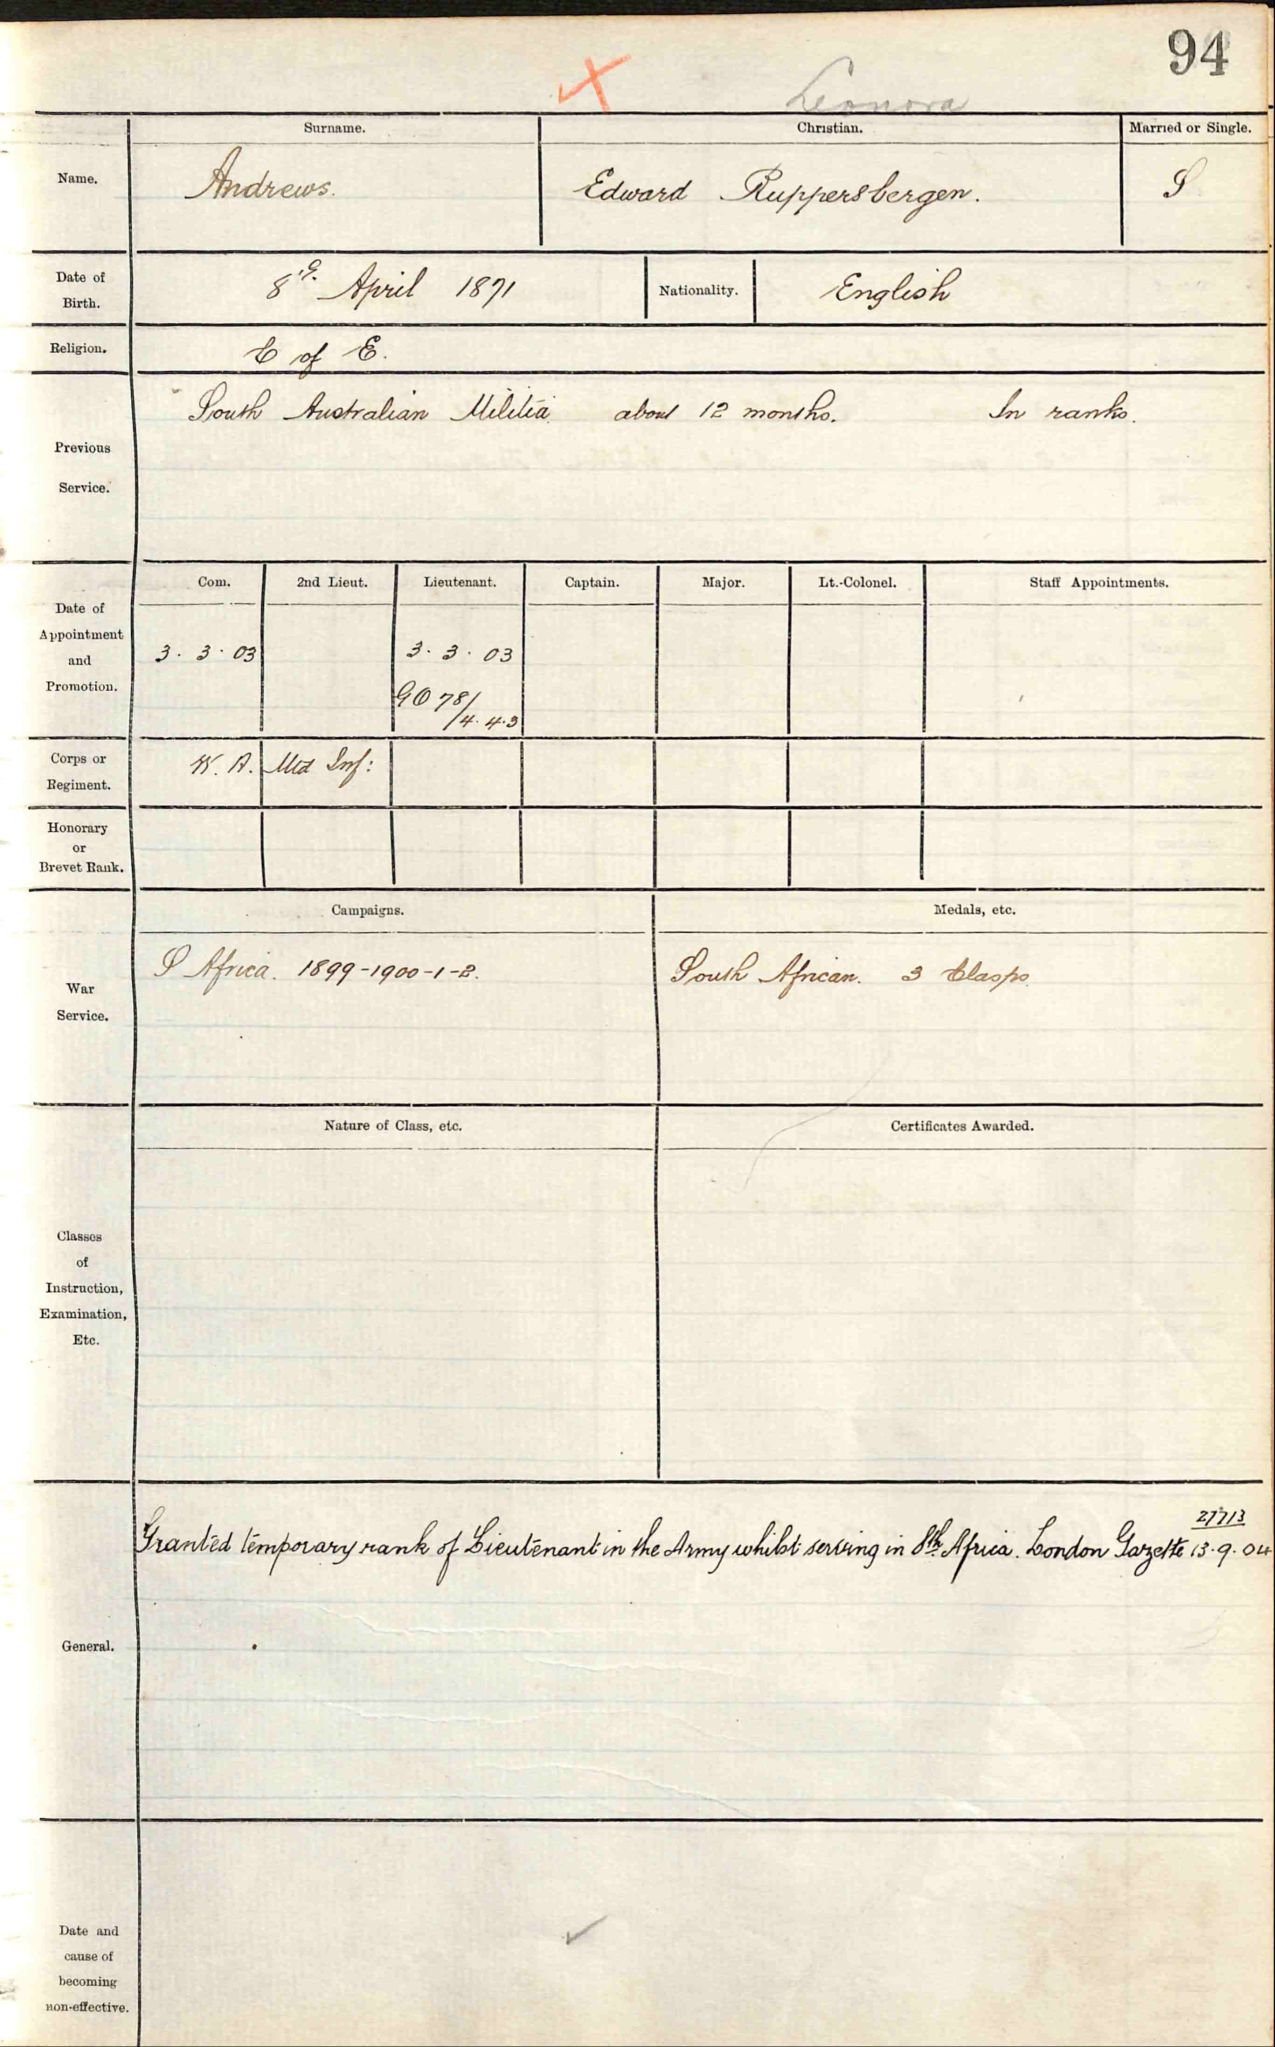 94
Leonora
Surname. Christian. Married or Single.
Name. Andrews. Edward Ruppersbergen. S
Date of Birth. 8th April 1871 Nationality. English
Religion. C of E.
South Australian Militia about 12 months. In ranks.
Previous
Service.
Com. 2nd Lieut. Lieutenant. Captain. Major. Lt.-Colonel. Staff Appointments.
Date of
Appointment
and
Promotion.
3. 3. 03 3. 3. 03
GO 78/4.4.3
Corps or
Regiment.
W. A. Mtd Inf:
Honorary
or
Brevet Rank.
Campaigns. Medals, etc.
S Africa. 1899-1900-1-2. South African. 3 Clasps.
War
Service.
Nature of Class, etc. Certificates Awarded.
Classes
of
Instruction,
Examination,
Etc.
27713
Granted temporary rank of Lieutenant in the Army whilst serving in Sth Africa. London Gazette 13.9.04
General.
Date and
cause of
becoming
non-effective.